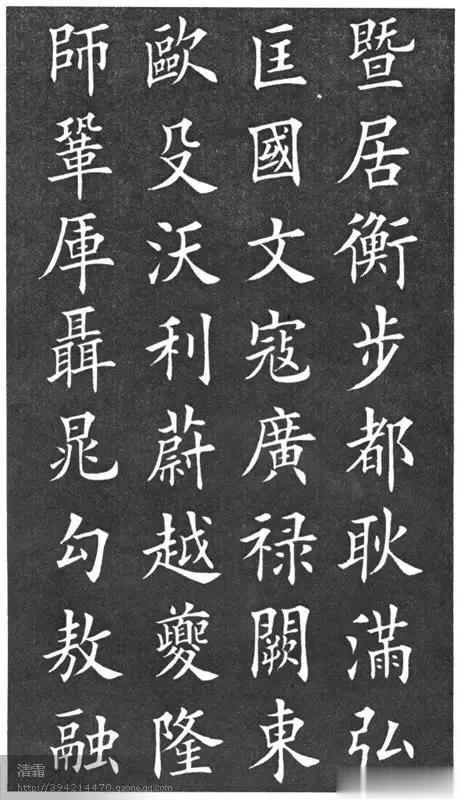 暨居衡步都耿滿弘
匡國文寇廣禄闕東
歐殳沃利蔚越夔隆
師鞏厙聶晁勾敖融
清霜
http://394214470.qzone.qq.com